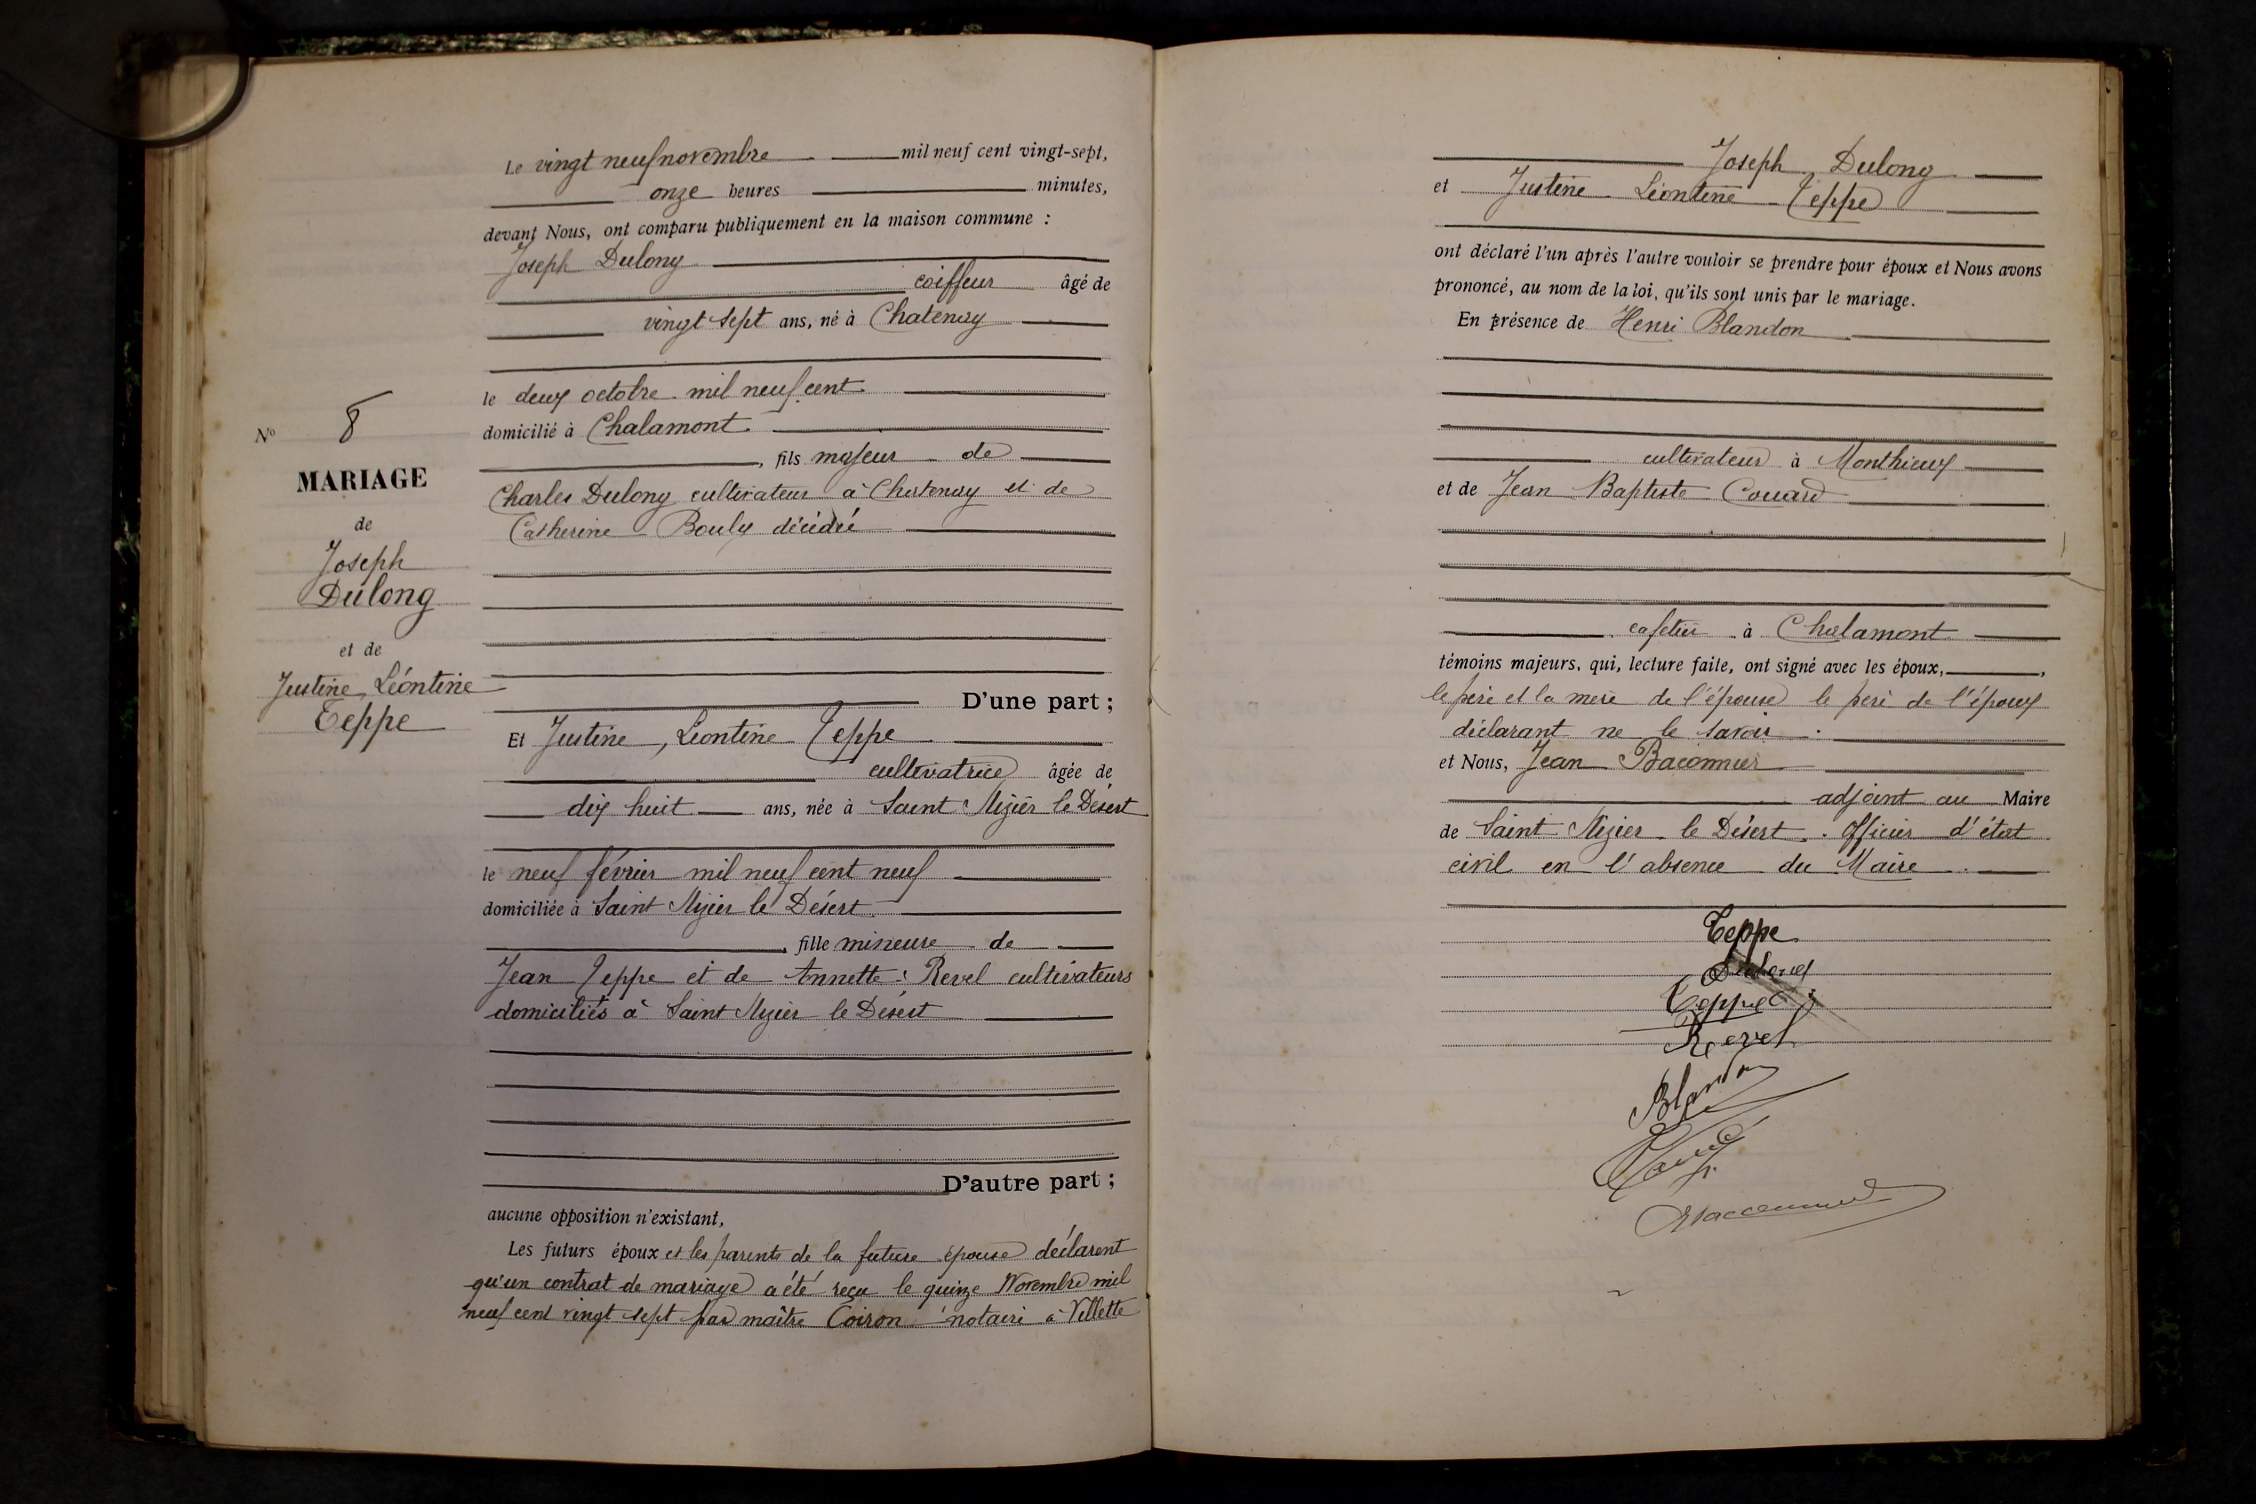 Le vingt neuf novembre mil neuf cent vingt-sept,
onze heures minutes,
devant Nous, ont comparu publiquement en la maison commune :
Joseph Dulong
coiffeur âgé de
vingt sept ans, né à Chatenay
le deux octobre mil neuf cent
domicilié à Chalamont
, fils majeur de
Charles Dulong cultivateur à Chatenay et de
Catherine Bouly décédée
D'une part ;
N° 8
MARIAGE
de
Joseph
Dulong
et de
Justine, Léontine
Teppe
Et Justine, Léontine Teppe
cultivatrice âgée de
dix huit ans, née à Saint Nizier le Désert
le neuf février mil neuf cent neuf
domiciliée à Saint Nizier le Désert
, fille mineure de
Jean Teppe et de Annette Revel cultivateurs
domiciliés à Saint Nizier le Désert
D'autre part ;
aucune opposition n'existant,
Les futurs époux et les parents de la future épouse déclarent
qu'un contrat de mariage a été reçu le quinze Novembre mil
neuf cent vingt sept par maître Coiron notaire à Villette
Joseph Dulong
et Justine Léontine Teppe
ont déclaré l'un après l'autre vouloir se prendre pour époux et Nous avons
prononcé, au nom de la loi, qu'ils sont unis par le mariage.
En présence de Henri Blandon
cultivateur à Monthieux
et de Jean Baptiste Couard
cafetier à Chalamont
témoins majeurs, qui, lecture faite, ont signé avec les époux, ,
le père et la mère de l'épouse le père de l'époux
déclarant ne le savoir .
et Nous, Jean Baconnier
adjoint au Maire
de Saint Nizier le Désert . Officier d'état
civil en l'absence du Maire
Teppe
Dulong
Teppe
Revel
Blandon